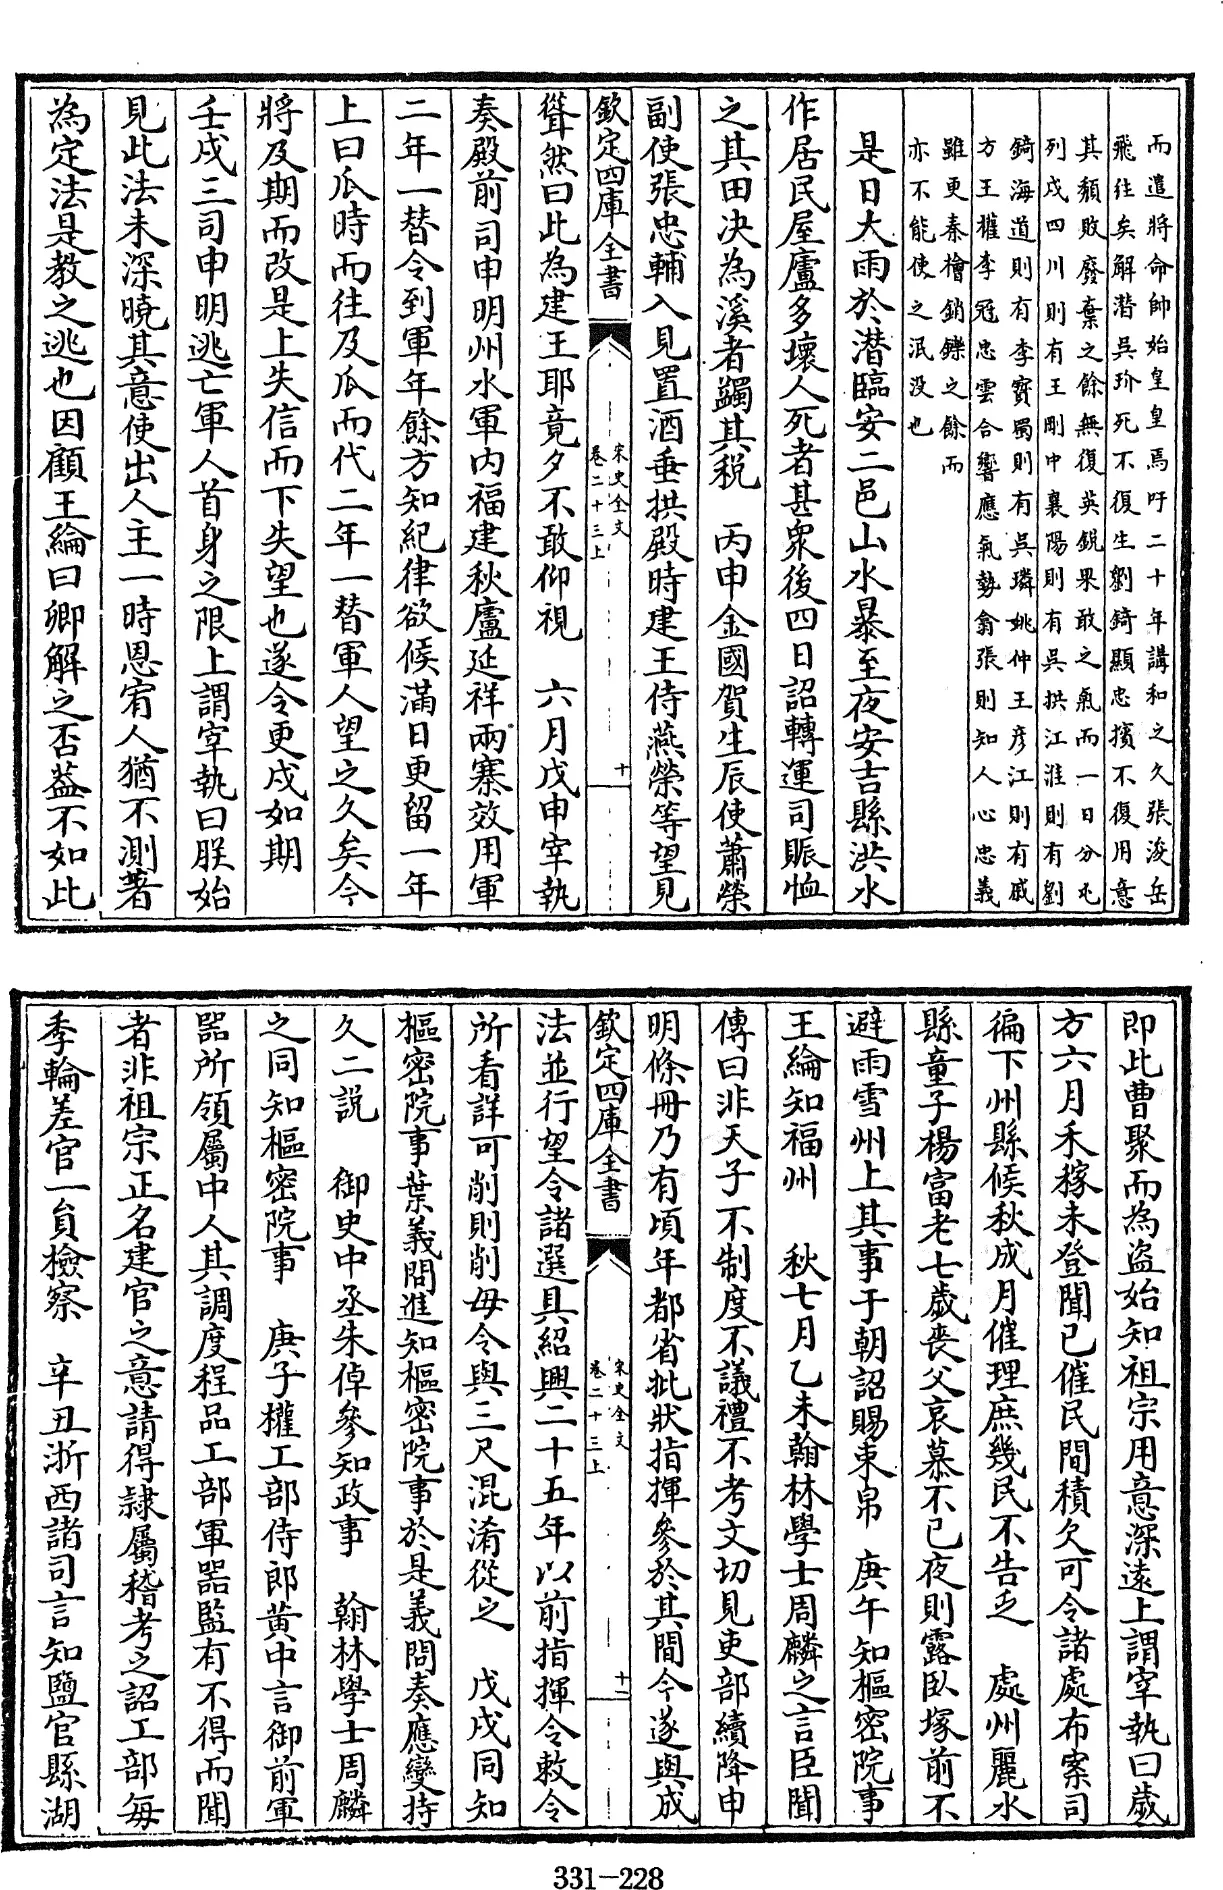 而遣將命帥始皇皇焉吁二十年講和之久張浚岳
飛往矣解潛吳玠死不復生劉錡顯忠擯不復用意
其頽敗廢棄之餘無復英鋭果敢之氣而一日分屯
列戍四川則有王剛中襄陽則有吳拱江淮則有劉
錡海道則有李寳蜀則有吳璘姚仲王彦江則有戚
方王權李冠忠雲合響應氣勢翕張則知人心忠義
雖更秦檜銷鑠之餘而
亦不能使之泯没也
是日大雨於潛臨安二邑山水暴至夜安吉縣洪水
作居民屋廬多壞人死者甚衆後四日詔轉運司賑恤
之其田决為溪者蠲其稅　丙申金國賀生辰使蕭榮
副使張忠輔入見置酒垂拱殿時建王侍燕榮等望見
欽定四庫全書
宋史全文
卷二十三上
十
聳然曰此為建王耶竟夕不敢仰視　六月戊申宰執
奏殿前司申明州水軍内福建秋廬延祥兩寨效用軍
二年一替令到軍年餘方知紀律欲候滿日更留一年
上曰瓜時而往及瓜而代二年一替軍人望之久矣今
將及期而改是上失信而下失望也遂令更戍如期
壬戌三司申明逃亡軍人首身之限上謂宰執曰朕始
見此法未深曉其意使出人主一時恩宥人猶不測著
為定法是教之逃也因顧王綸曰卿解之否葢不如此
即此曹聚而為盗始知祖宗用意深逺上謂宰執曰歳
方六月禾稼未登聞已催民間積欠可令諸處布案司
徧下州縣候秋成月催理庶幾民不告乏　處州麗水
縣童子楊富老七歲喪父哀慕不已夜則露臥塚前不
避雨雪州上其事于朝詔賜束帛　庚午知樞密院事
王綸知福州　秋七月乙未翰林學士周麟之言臣聞
傳曰非天子不制度不議禮不考文切見吏部續降申
明條冊乃有頃年都省批狀指揮參於其間今遂與成
欽定四庫全書
宋史全文
卷二十三上
十一
法並行望令諸選具紹興二十五年以前指揮令敕令
所看詳可削則削毋令與三尺混淆從之　戊戌同知
樞密院事葉義問進知樞密院事於是義問奏應變持
久二説　御史中丞朱倬參知政事　翰林學士周麟
之同知樞密院事　庚子權工部侍郎黄中言御前軍
器所領屬中人其調度程品工部軍器監有不得而聞
者非祖宗正名建官之意請得隸屬稽考之詔工部毎
季輪差官一員檢察　辛丑浙西諸司言知鹽官縣湖
331-228